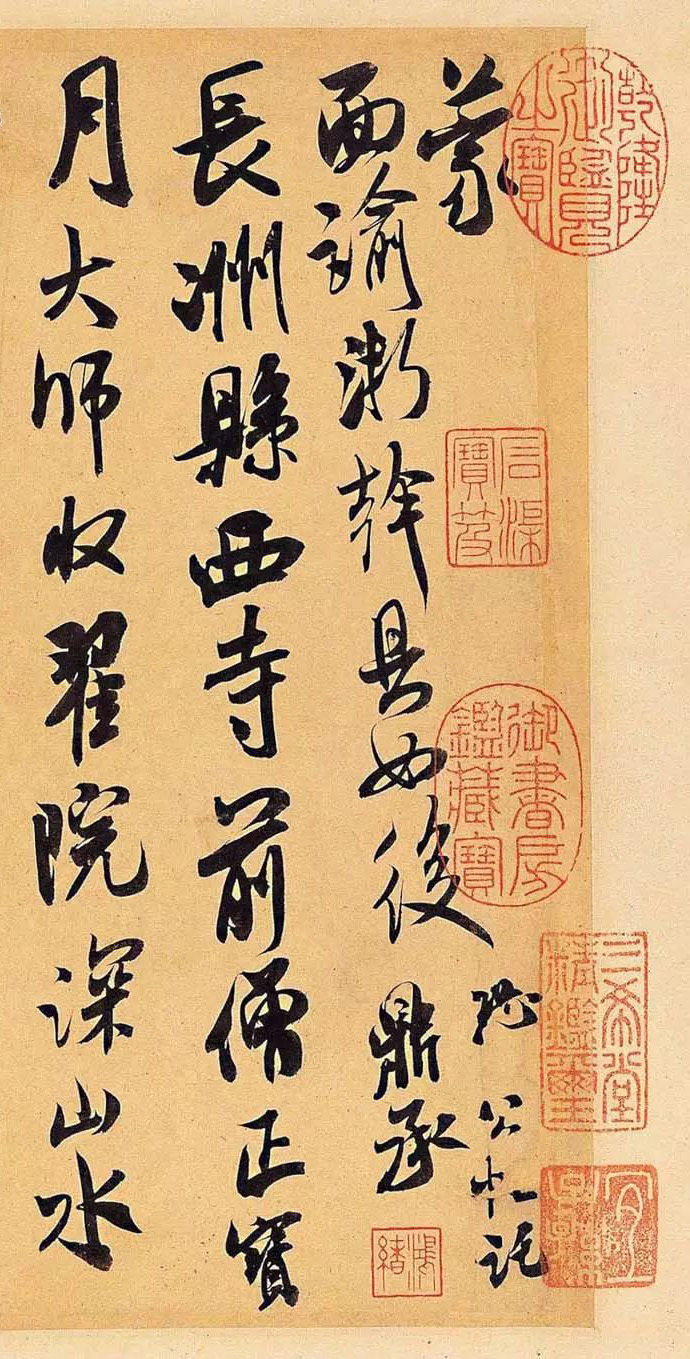 乾隆御覽之寶
三希堂精鑑璽
宜子孫
石渠寶笈
御書房鑑藏寶
蒙
面諭浙幹具如後 鼎承
長洲縣西寺前僧正寶
月大師收翟院深山水